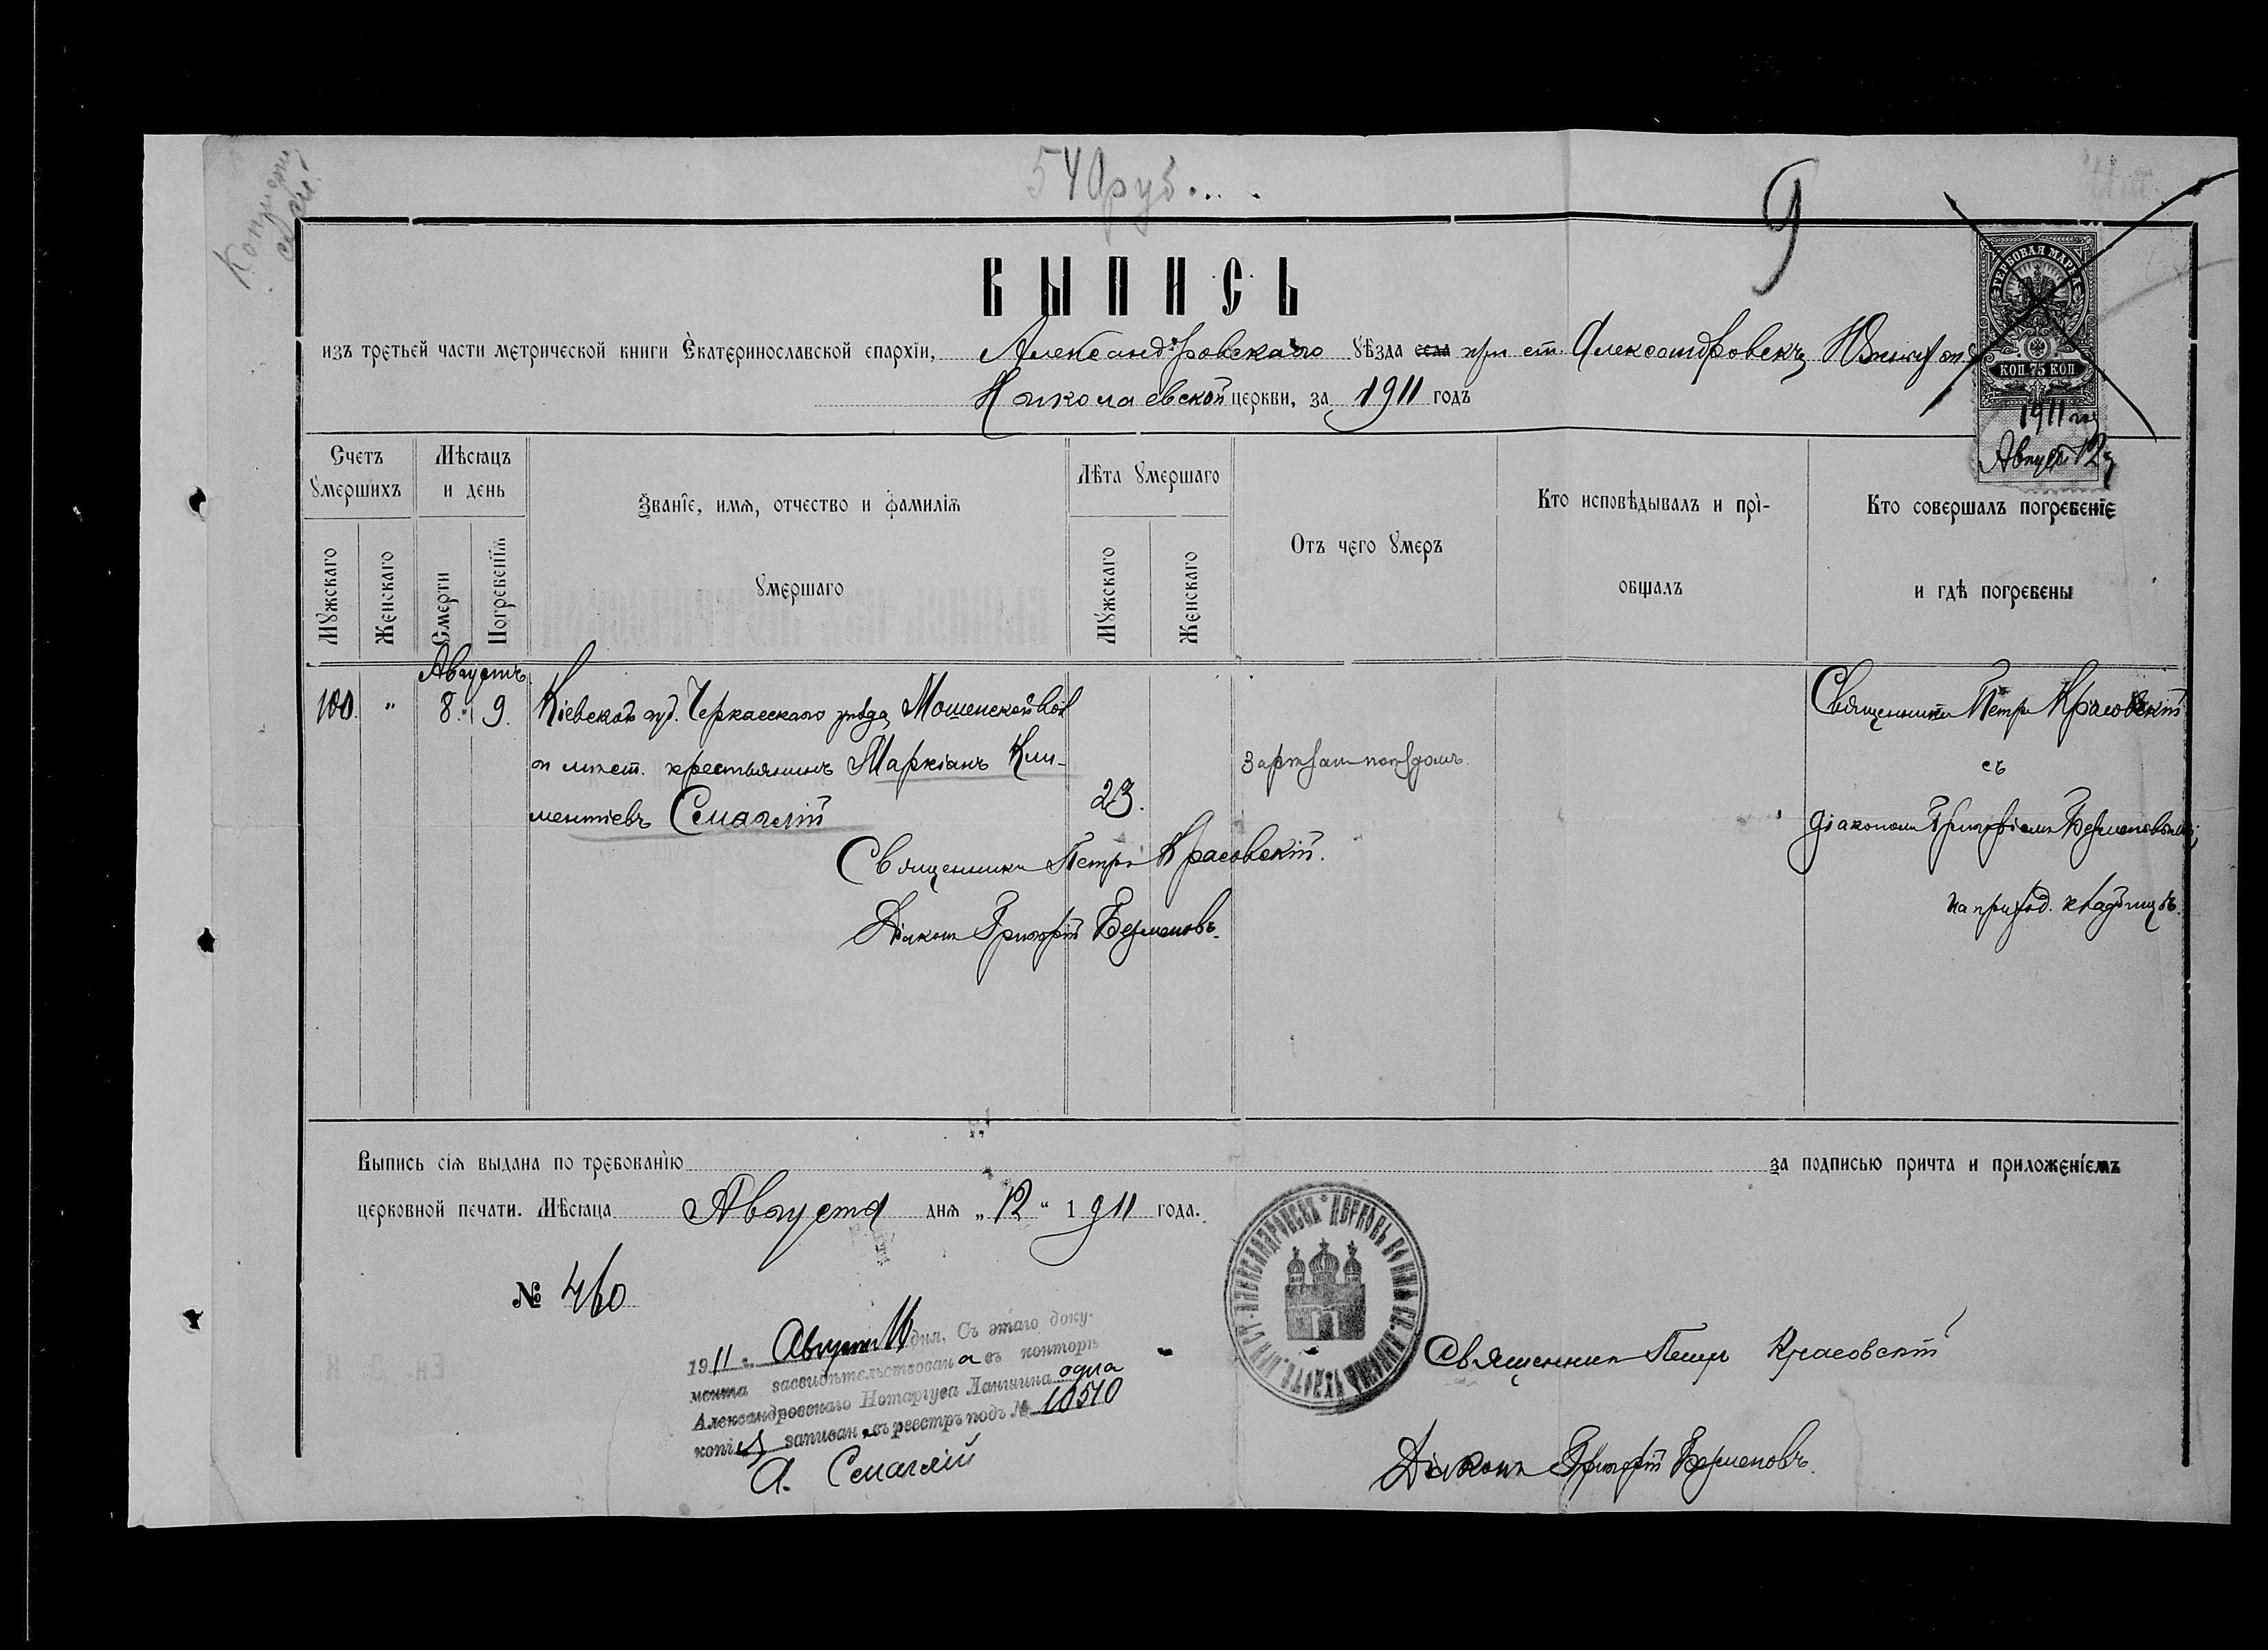 540 руб.
9
ВЫПИСЬ
изъ третьей части метрической книги Екатеринославской епархіи, Александровскаго уѣзда села при ст. Александровскъ Южныхъ
Николаевской церкви, за 1911 годъ
ГЕРБОВАЯ МАРКА
КОП 75 КОП
1911 год
Август 12
Счетъ умершихъ
Мѣсяцъ и день
Званіе, имя, отчество и фамилія умершаго
Лѣта умершаго
Отъ чего умеръ
Кто исповѣдывалъ и прі-
общалъ
Кто совершалъ погребеніе
и гдѣ погребены
Мужскаго
Женскаго
Смерти
Погребенія
Мужскаго
Женскаго
Августъ
100. " 8. 9. Кіевской губ. Черкасскаго уѣзда, Мошенской вол
и мѣст. крестьянинъ Маркіанъ Кли-
ментіевъ Смаглій
23.
Зарѣзан поѣздомъ.
Священникъ Петръ Красовскій
съ
діакономъ Григоріемъ
на приход. кладбищѣ.
Священникъ Петръ Красовскій.
Діаконъ Григорій
Выпись сія выдана по требованію за подписью причта и приложеніемъ
церковной печати. Мѣсяца Августа дня „12" 1911 года.
№ 460
1911 г. Августа дня, Съ этаго доку-
мента засвидѣтельствована въ конторѣ
Александровскаго Нотаріуса одна
копія записан въ реестръ подъ № 10510
А. Смаглій
Священникъ Петръ Красовскій
Діаконъ Григорій